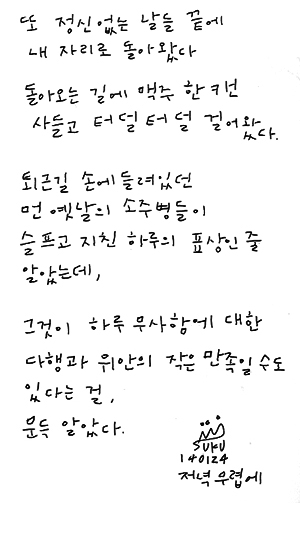 또 정신없는 날들 끝에
내 자리로 돌아왔다
돌아오는 길에 맥주 한 캔
사들고 터덜터덜 걸어왔다.
퇴근길 손에 들려있던
먼 옛날의 소주병들이
슬프고 지친 하루의 표상인 줄
알았는데,
그것이 하루 무사함에 대한
다행과 위안의 작은 만족일 수도
있다는 걸,
문득 알았다.
SUKU
140124
저녁 무렵에